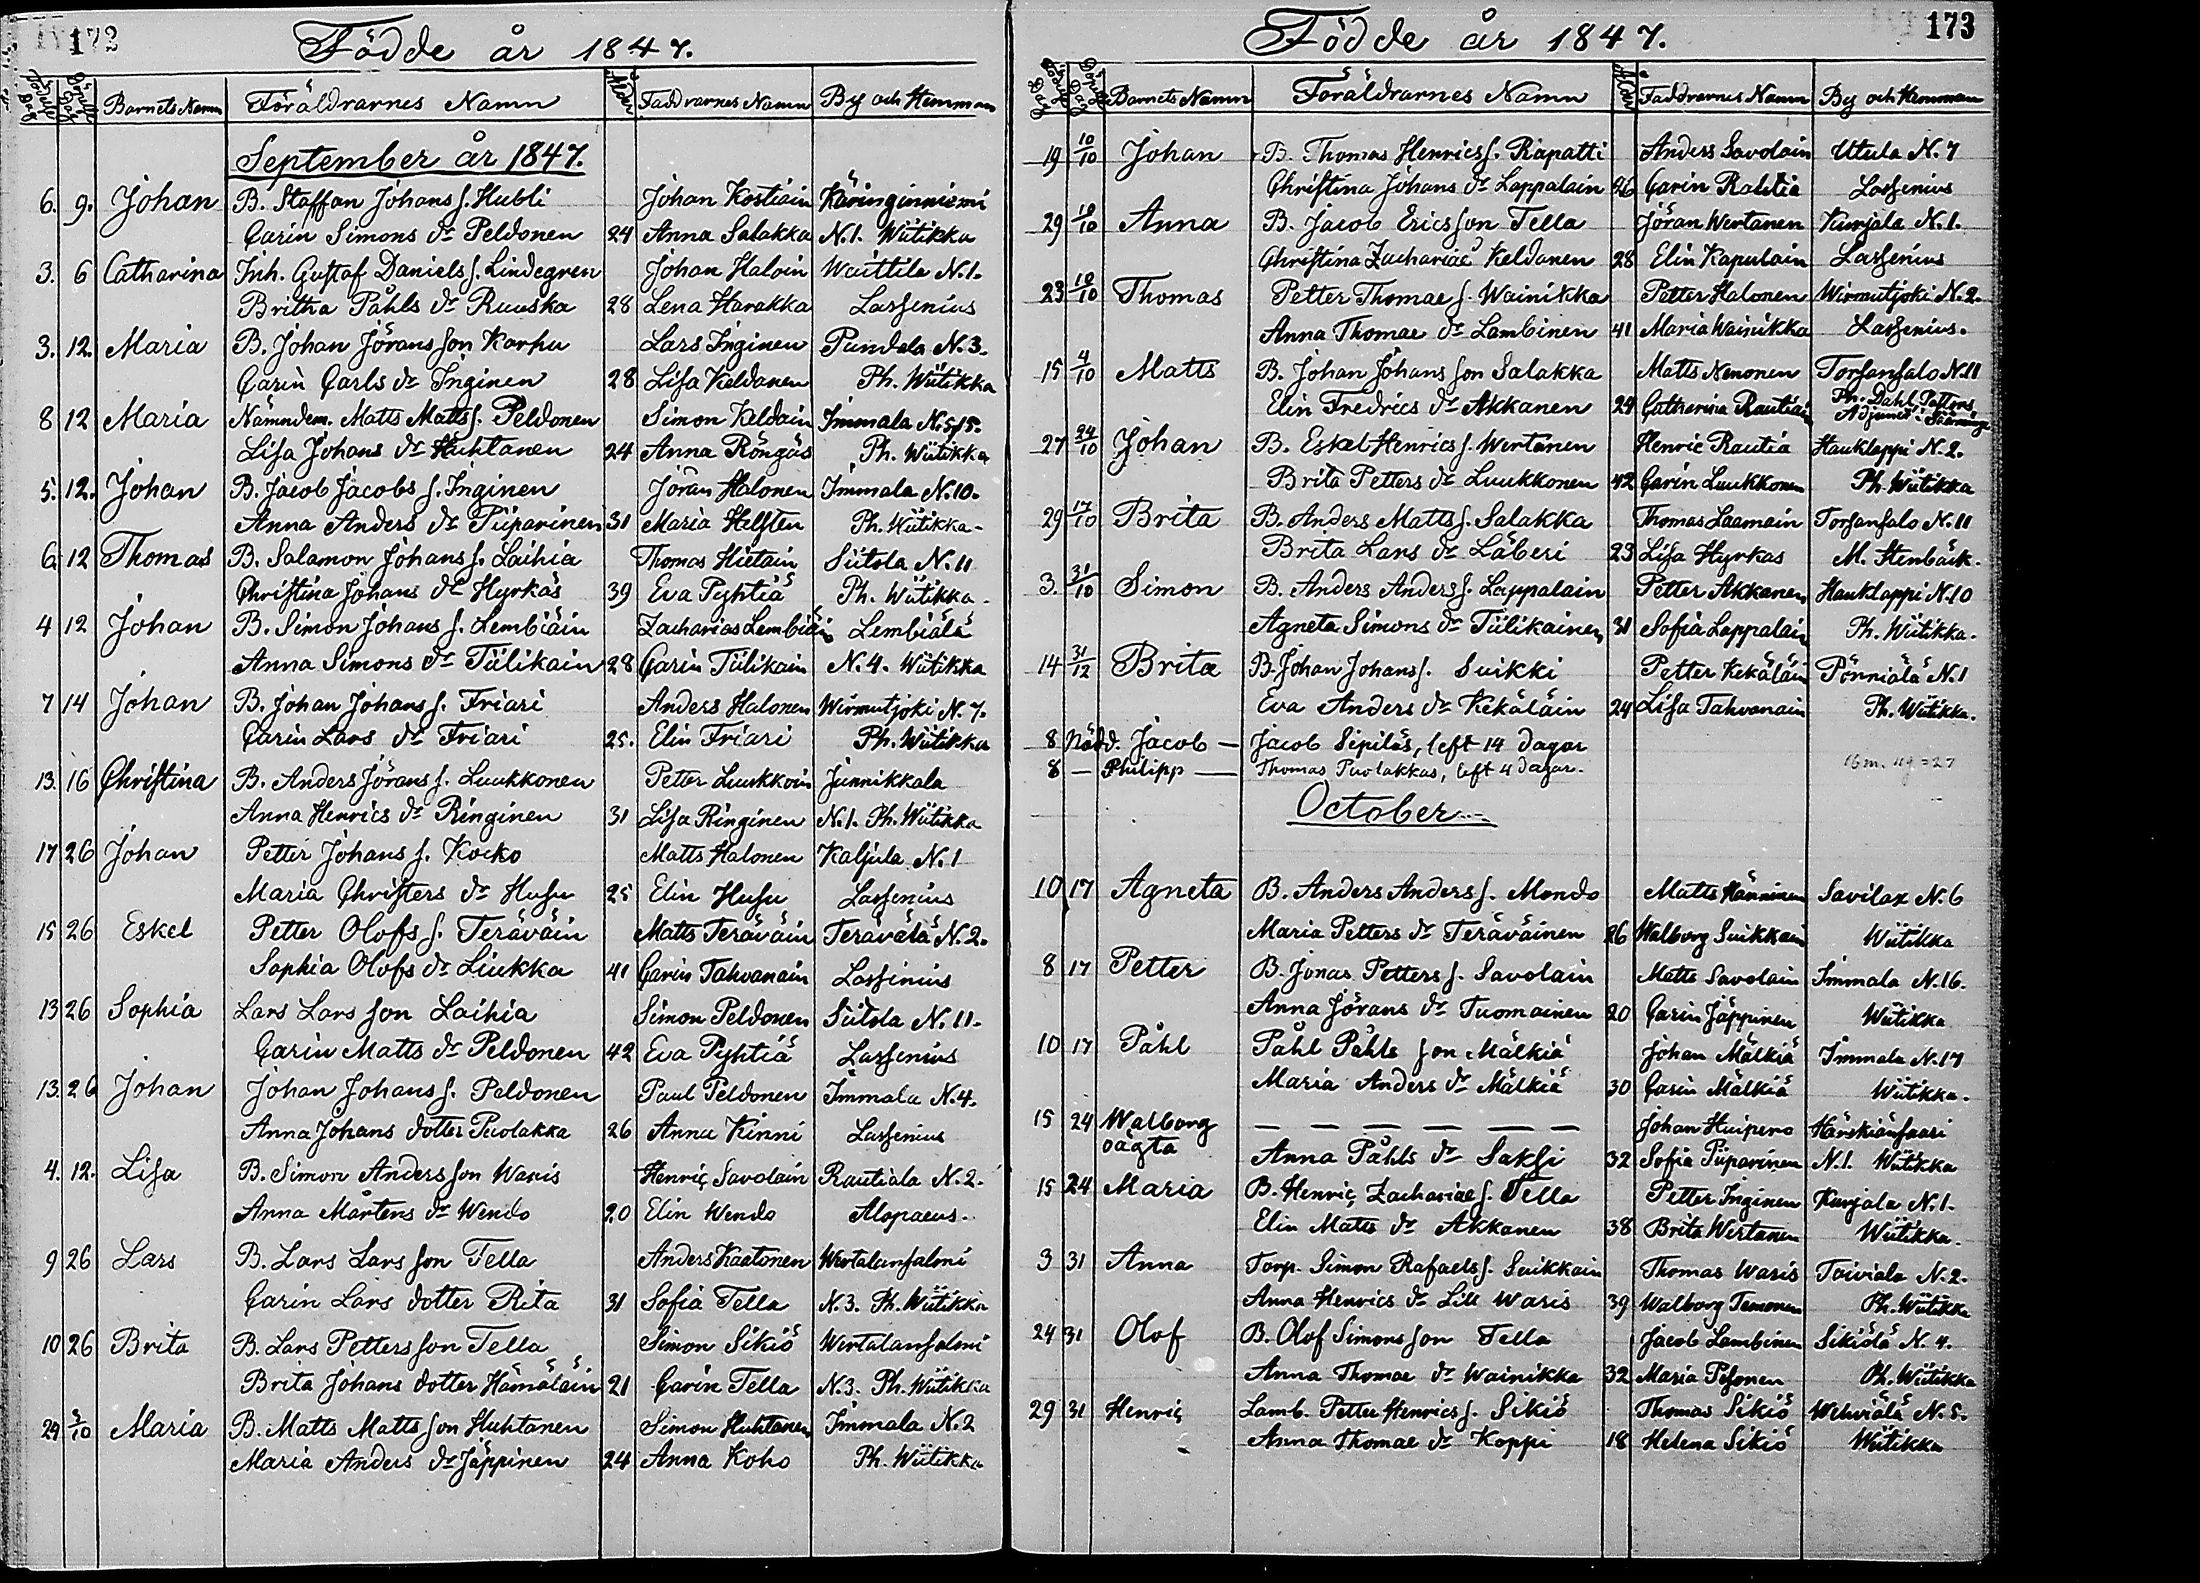 172
Födde år 1847.
Barnets Namn Föräldrarnes Namn Ålder Faddrarnes Namn By och Hemman
September år 1847.
6. 9. Johan B. Staffan Johans s. Hubli Johan Kostiain Käringinniemi
Carin Simons dr Peldonen 24 Anna Salakka N.1. Wiitikka
3. 6 Catharina Inh. Gustaf Daniels s. Lindegren Johan Haloin Waittila N.1.
Britha Påhls dr Ruuska 28 Lena Harakka Lassenius
3. 12. Maria B. Johan Jörans son Karhu Lars Inginen Pundala N.3.
Carin Carls dr Inginen 28 Lisa Keldanen Ph. Wiitikka
8 12 Maria Nämndem. Matts Matts s. Peldonen Simon Keldain Immala N.5/5.
Lisa Johans dr Huhtanen 24 Anna Röngäs Ph. Wiitikka
5. 12. Johan B. Jacob Jacobs s. Inginen Jöran Halonen Immala N.10.
Anna Anders dr Piiparinen 31 Maria Helsten Ph. Wiitikka-
6 12 Thomas B. Salamon Johans s. Laihia Thomas Hietain Siitola N.11
Christina Johans dr Hyrkäs 39 Eva Pyhtiä Ph. Wiitikka-
4 12 Johan B. Simon Johans s. Lembiäin Zacharias Lembiäin Lembiälä
Anna Simons dr Tiilikain 28 Carin Tiilikain N.4. Wiitikka
7 14 Johan B. Johan Johans s. Friari Anders Halonen Wirmutjoki N.7.
Carin Lars dr Friari 25. Elin Friari Ph. Wiitikka
13. 16 Christina B. Anders Jörans s. Luukkonen Petter Luukkoin Junnikkala
Anna Henrics dr Ringinen 31 Lisa Ringinen N.1. Ph. Wiitikka
17 26 Johan Petter Johans s. Kocko Matts Halonen Kaljula N.1
Maria Christers dr Husu 25 Elin Husu Lassenius
15 26 Eskel Petter Olofs s. Teräväin Matts Teräväin Terävälä N.2.
Sophia Olofs dr Liukka 41 Carin Tahvanain Lassinius
13 26 Sophia Lars Lars son Laihia Simon Peldonen Siitola N.11.
Carin Matts dr Peldonen 42 Eva Pyhtiä Lassenius
13. 26 Johan Johan Johans s. Peldonen Paul Peldonen Immala N.4.
Anna Johans dotter Puolakka 26 Anna Kinni Lassenius
4. 12. Lisa B. Simon Anders son Waris Henric Savolain Rautiala N.2.
Anna Mårtens dr Wendo 20 Elin Wendo Alopaeus.
9 26 Lars B. Lars Lars son Tella Anders Kaatonen Wertalansalmi
Carin Lars dotter Rita 31 Sofia Tella N.3. Ph. Wiitikka
10 26 Brita B. Lars Petters son Tella Simon Sikiö Wertalansalmi
Brita Johans dotter Hämäläin 21 Carin Tella N.3. Ph. Wiitikka
29 3/10 Maria B. Matts Matts son Huhtanen Simon Huhtanen Immala N.2
Maria Anders dr Jäppinen 24 Anna Koho Ph. Wiitikka
173
Födde år 1847.
Barnets Namn Föräldrarnes Namn Ålder Faddrarnes Namn By och Hemman
19 10/10 Johan B. Thomas Henrics s. Rapatti Anders Savolain Utula N.7
Christina Johans dr Lappalain 26 Carin Rautia Lassenius
29 10/10 Anna B. Jacob Ericsson Tella Jöran Wertanen Kurjala N.1.
Christina Zachariæ Keldanen 28 Elin Kapulain Lassenius
23 10/10 Thomas Petter Thomae s. Wainikka Petter Halonen Wirmutjoki N.2.
Anna Thomae dr Lambinen 41 Maria Wainikka Lassenius.
15 4/10 Matts B. Johan Johans son Salakka Matts Nenonen Torsansalo N.11
Elin Fredrics dr Akkanen 24 Catharina Rautiain Ph. Dahl Pastors Adjunct i Säminge
27 24/10 Johan B. Eskel Henrics s. Wertanen Henric Rautia Hauklappi N.2.
Brita Petters dr Luukkonen 42 Carin Luukkonen Ph. Wiitikka
29 17/10 Brita B. Anders Matts s. Salakka Thomas Laamain Torsansalo N.11
Brita Lars dr Läberi 23 Lisa Hyrkas M. Stenbäck.
3. 31/10 Simon B. Anders Anders s. Lappalain Petter Akkanen Hauklappi N.10
Agneta Simons dr Tiilikainen 31 Sofia Lappalain Ph. Wiitikka.
14 31/12 Brita B. Johan Johans s. Suikki Petter Kekäläin Pönniälä N.1
Eva Anders dr Kekäläin 24 Lisa Tahvanain Ph. Wiitikka.
8 Nödd. Jacob — Jacob Sipiläs, left 14 dagar
8 — Philipp — Thomas Puolakkas, left 4 dagar.
16 m. 11 q = 27
October
10 17 Agneta B. Anders Anders s. Mondo Matts Hänninen Savilax N.6
Maria Petters dr Teräväinen 26 Walborg Suikkain Wiitikka
8 17 Petter B. Jonas Petters s. Savolain Matts Savolain Immala N.16.
Anna Jörans dr Tuomainen 20 Carin Jäppinen Wiitikka
10 17 Påhl Påhl Påhls son Mälkiä Johan Mälkiä Immala N.17
Maria Anders dr Mälkiä 30 Carin Mälkiä Wiitikka.
15 24 Walborg — — — — — — Johan Huipero Härskiänsaari
oägta Anna Påhls dr Saksi 32 Sofia Piiparinen N.1. Wiitikka
15 24 Maria B. Henric Zachariae s. Tella Petter Inginen Kurjala N.1.
Elin Matts dr Akkanen 38 Brita Wertanen Wiitikka.
3 31 Anna Torp. Simon Rafaels s. Suikkain Thomas Waris Toiviala N.2.
Anna Henrics dr Lill Waris 39 Walborg Temonen Ph. Wiitikka
24 31 Olof B. Olof Simons son Tella Jacob Lambinen Sikiölä N.4.
Anna Thomae dr Wainikka 32 Maria Pesonen Ph. Wiitikka
29 31 Henric Lamb. Petter Henrics s. Sikiö Thomas Sikiö Wehviälä N.5.
Anna Thomae dr Koppi 18 Helena Sikiö Wiitikka